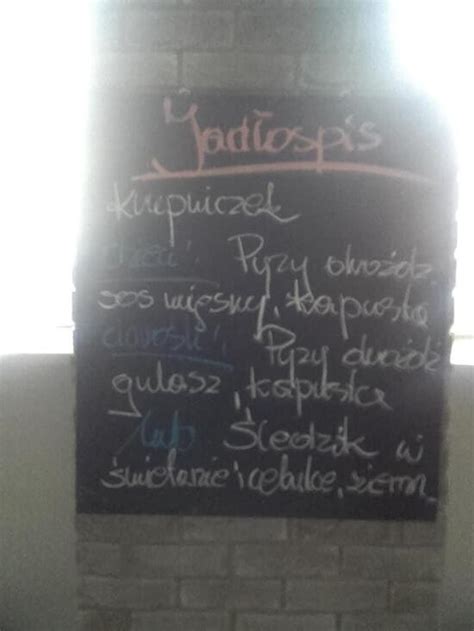 Jadłospis
Krupniczek
dzieci! Pyzy drożdż.
sos mięsny, kapusta
dorośli! Pyzy drożdż
gulasz, kapusta
lub Śledzik w
śmietanie i cebulce, ziemn.